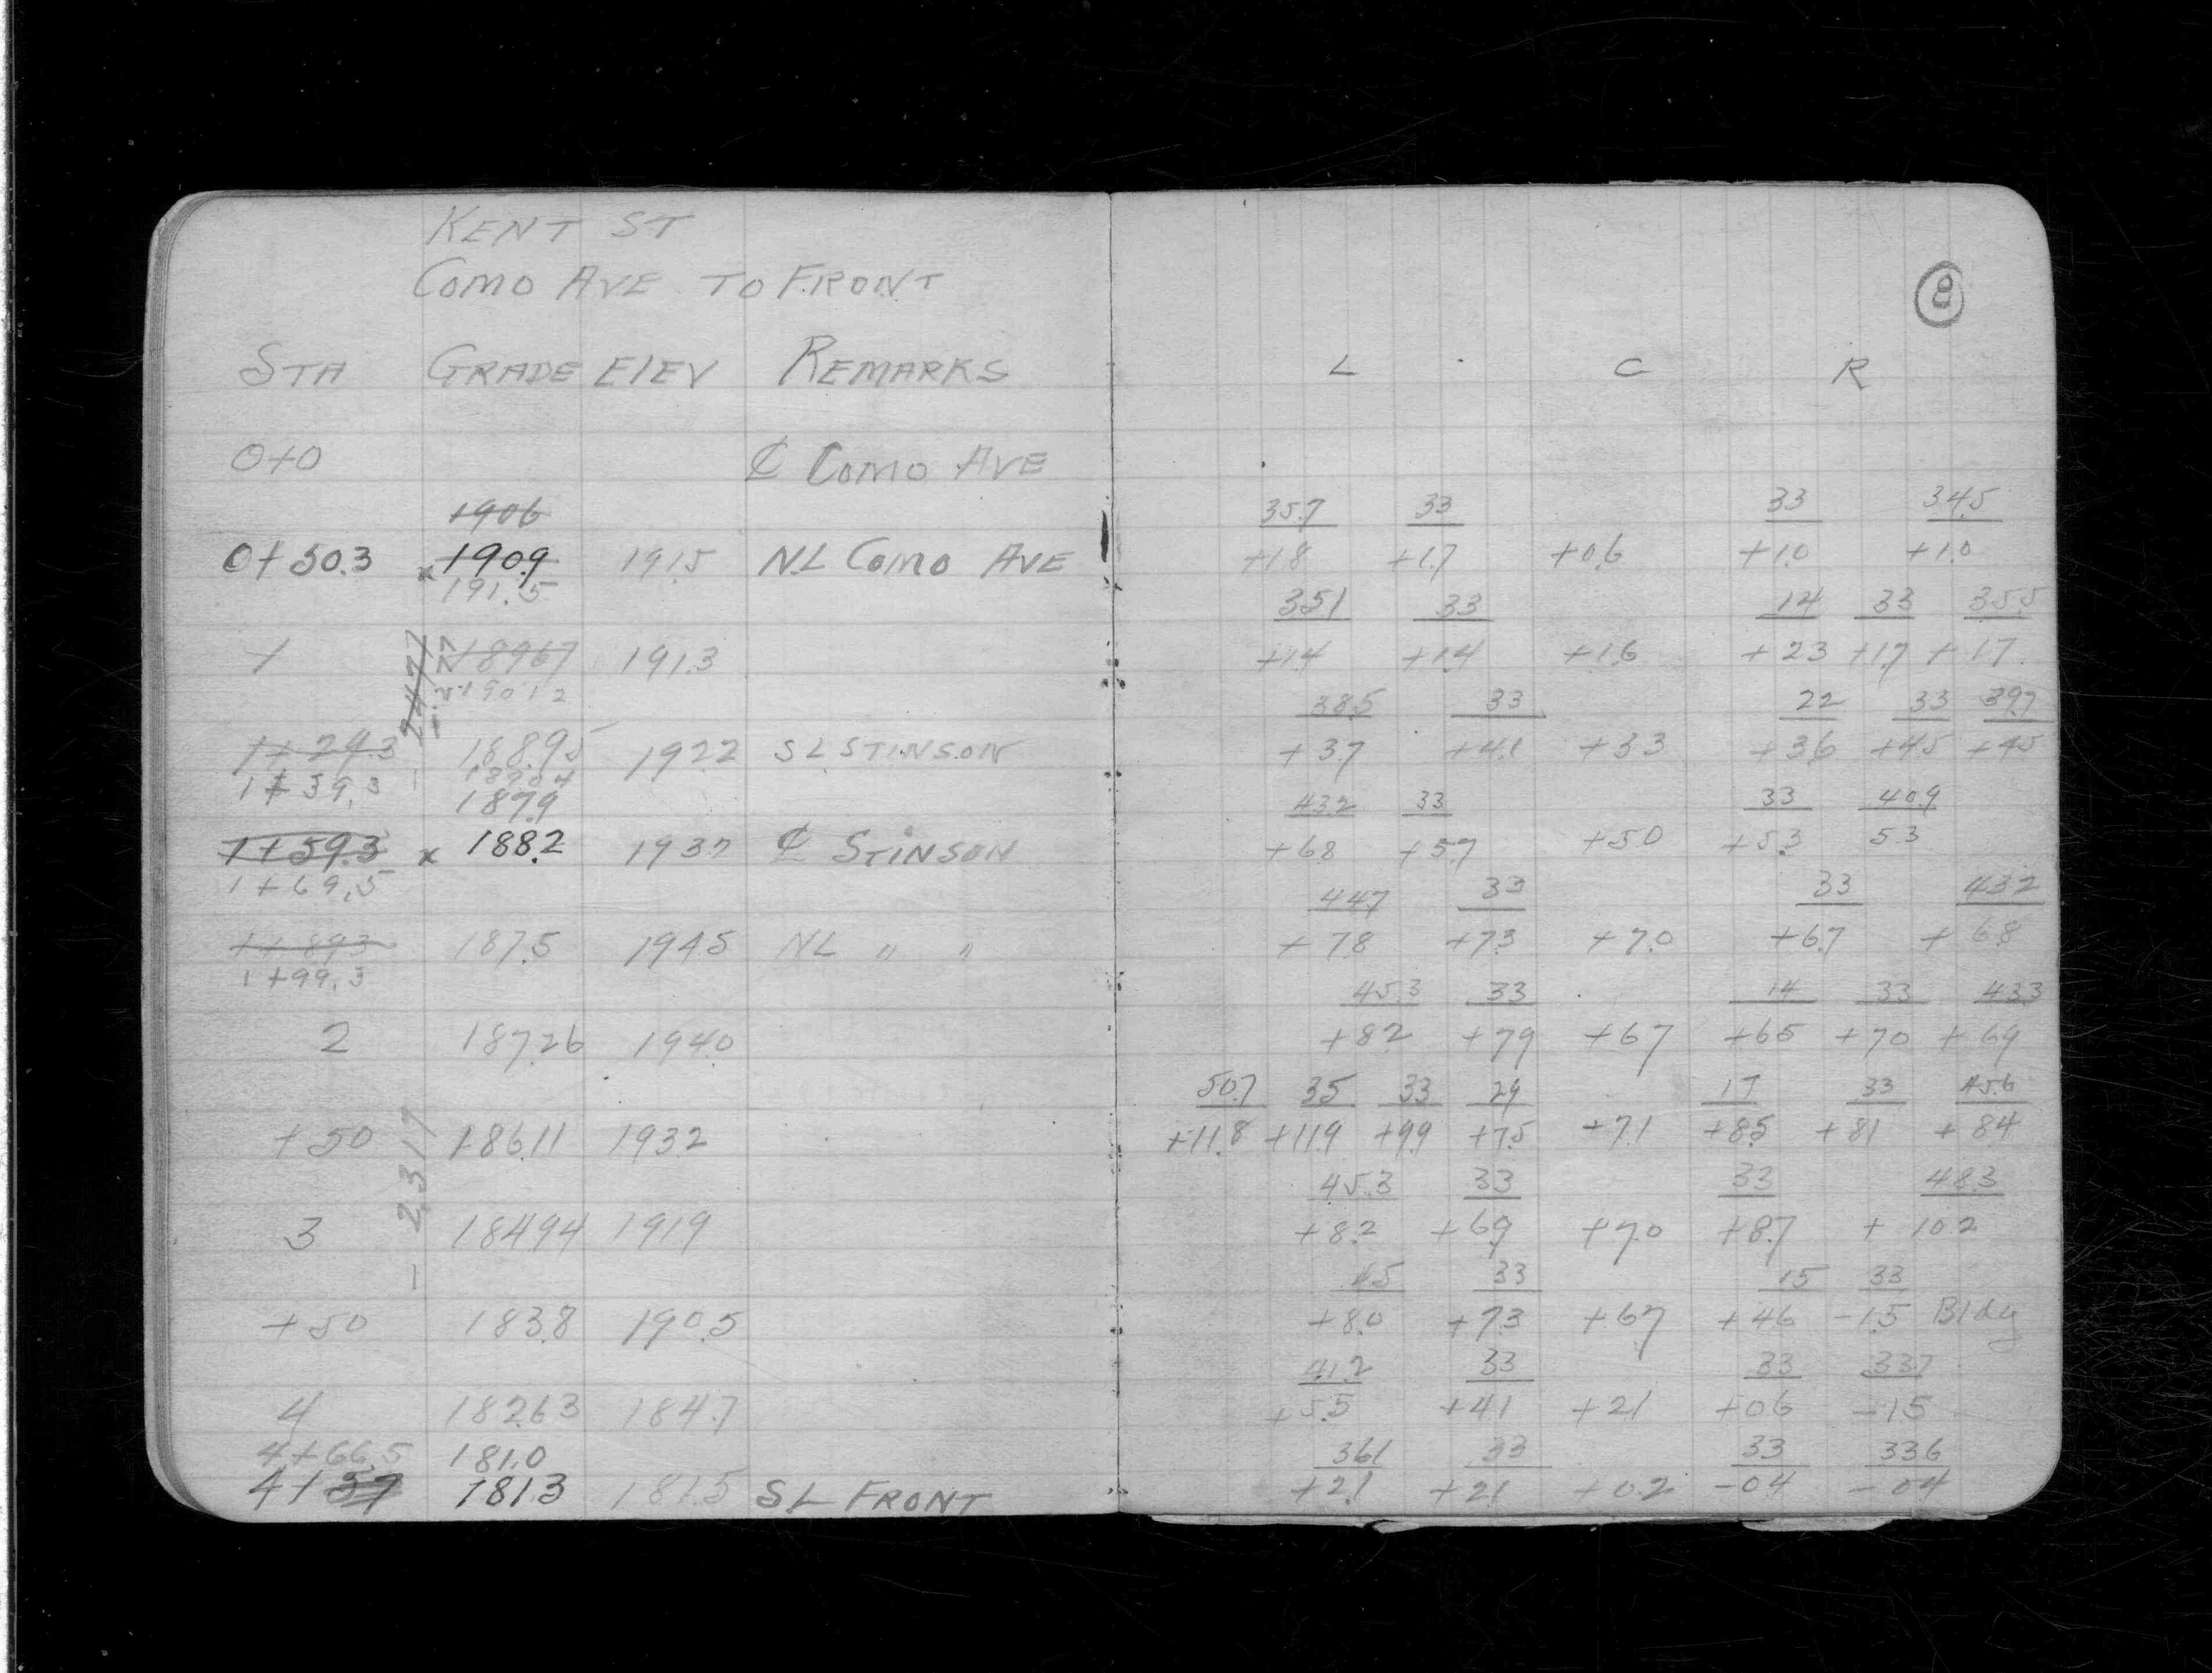 KENT ST
COMO AVE TO FRONT
8
STA GRADE ELEV REMARKS L C R
0+0 ₵ COMO AVE
1906 35.7 33 33 34.5
0+50.3 x 190.9 191.5 NL COMO AVE +1.8 +1.7 +0.6 +1.0 +1.0
191.5 35.1 33 14 33 35.5
1 189.67 191.3 +1.4 +1.4 +1.6 +2.3 +1.7 +1.7
190 12 38.5 33 22 33 39.7
1+24.3 188.95 192.2 SL STINSON +3.7 +4.1 +3.3 +3.6 +4.5 +4.5
1+39.3 189.04
187.9 43.2 33 33 40.9
1+59.3 x 188.2 193.7 ₵ STINSON +6.8 +5.7 +5.0 +5.3 5.3
1+69.5 44.7 33 33 43.2
1+89.3 187.5 194.5 NL " " +7.8 +7.3 +7.0 +6.7 +6.8
1+99.3 45.3 33 14 33 43.3
2 187.26 194.0 +8.2 +7.9 +6.7 +6.5 +7.0 +6.9
50.7 35 33 29 17 33 45.6
+50 186.11 193.2 +11.8 +11.9 +9.9 +7.5 +7.1 +8.5 +8.1 +8.4
- 2.317
45.3 33 33 48.3
3 184.94 191.9 +8.2 +6.9 +7.0 +8.7 + 10.2
45 33 15 33
+50 183.8 190.5 +8.0 +7.3 +6.7 +4.6 -1.5 Bldg
41.2 33 33 33.7
4 182.63 184.7 +5.5 +4.1 +2.1 +0.6 -1.5
4+66.5 181.0 36.1 33 33 33.6
4+57 181.3 181.5 SL FRONT +2.1 +2.1 +0.2 -0.4 -0.4